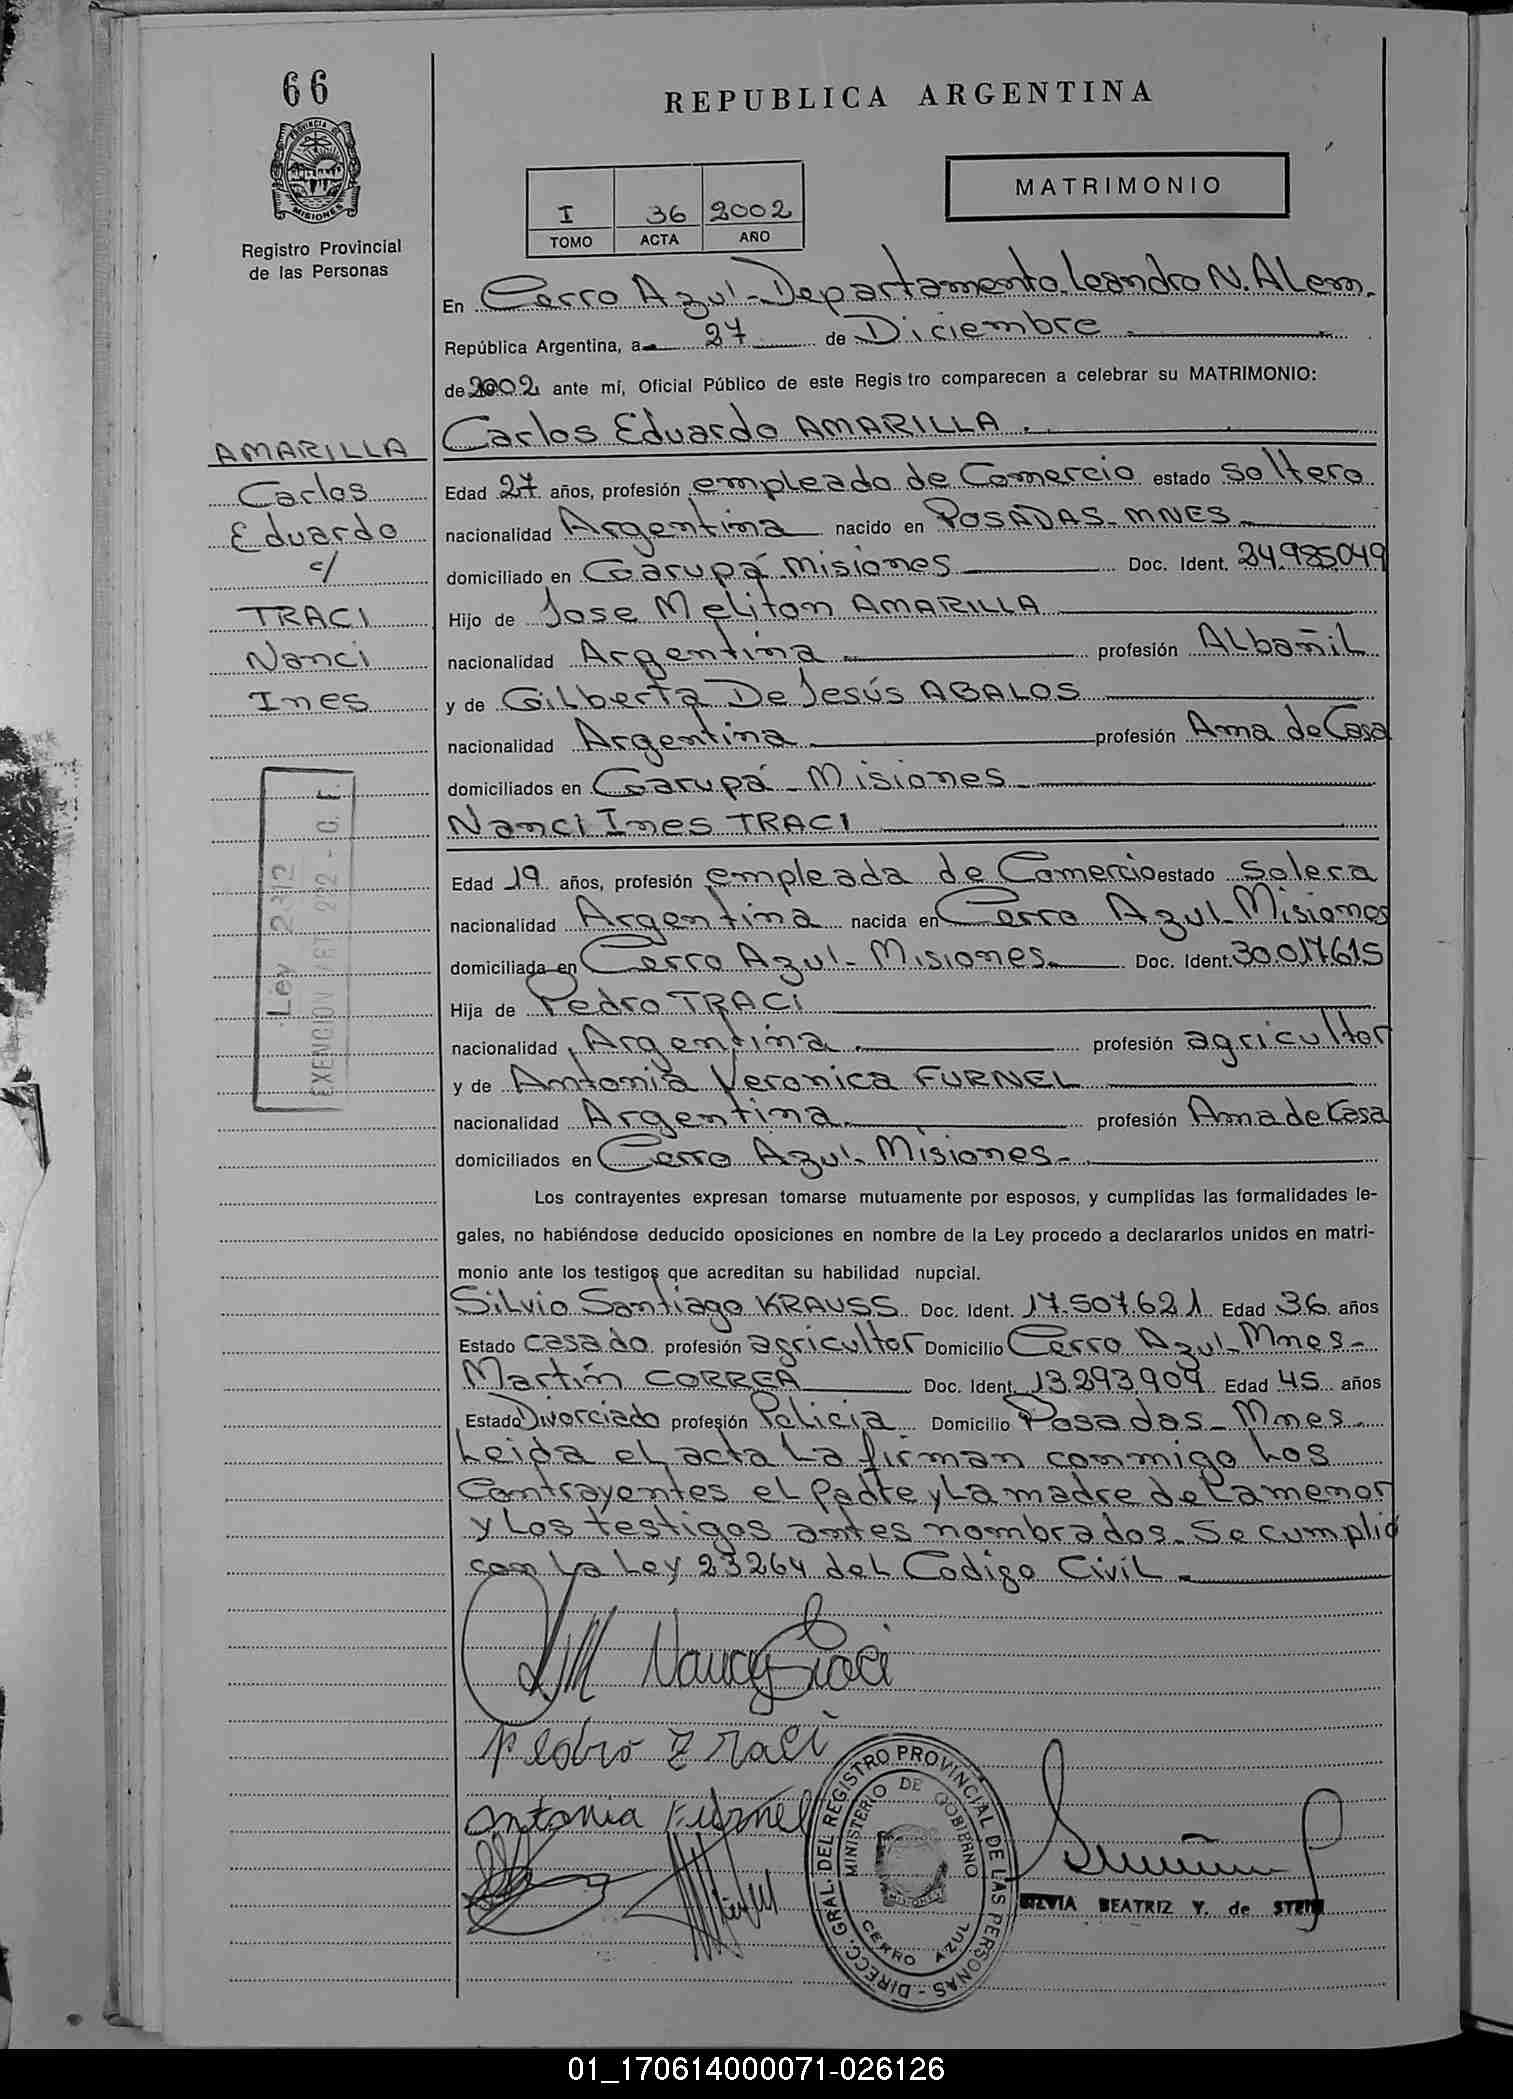 66
REPUBLICA ARGENTINA
PROVINCIA DE
MISIONES
Registro Provincial
de las Personas
MATRIMONIO
I 36 2002
TOMO ACTA AÑO
En Cerro Azul - Departamento Leandro N. ALem.
República Argentina, a 27 de Diciembre
de 2002 ante mí, Oficial Público de este Registro comparecen a celebrar su MATRIMONIO:
Carlos Eduardo AMARILLA.
AMARILLA
Carlos
Eduardo
c/
TRACI
Nanci
Ines
Edad 27 años, profesión empleado de Comercio estado soltero
nacionalidad Argentina nacido en POSADAS - MNES
domiciliado en Garupá Misiones Doc. Ident. 24.985.049
Hijo de Jose Meliton AMARILLA
nacionalidad Argentina profesión ALbañiL
y de GiLberta De Jesús ABALOS
nacionalidad Argentina profesión Ama de Casa
domiciliados en Garupá - Misiones -
Nanci Ines TRACI
Ley 2312
EXENCION ART 222 - C. F.
Edad 19 años, profesión empleada de Comercio estado solera
nacionalidad Argentina nacida en Cerro Azul - Misiones
domiciliada en Cerro Azul - Misiones Doc. Ident. 30.017.615
Hija de Pedro TRACI
nacionalidad Argentina profesión agricultor
y de Antonia Veronica FURNEL
nacionalidad Argentina profesión Ama de Casa
domiciliados en Cerro Azul - Misiones -
Los contrayentes expresan tomarse mutuamente por esposos, y cumplidas las formalidades le-
gales, no habiéndose deducido oposiciones en nombre de la Ley procedo a declararlos unidos en matri-
monio ante los testigos que acreditan su habilidad nupcial.
SiLvio Santiago KRAUSS Doc. Ident. 17.507.621 Edad 36 años
Estado casado profesión agricultor Domicilio Cerro Azul - Mnes -
Martín CORREA Doc. Ident. 13.293.909 Edad 45 años
Estado Divorciado profesión Policia Domicilio Posadas - Mnes -
Leida eL acta La firman conmigo Los
Contrayentes eL Padre y La madre de La menor
y Los testigos antes nombrados. Se cumplio
con La Ley 23264 deL Codigo CiviL -
Nancy Traci
Pedro Traci
antonia Furnel
DIRECC. GRAL. DEL REGISTRO PROVINCIAL DE LAS PERSONAS -
MINISTERIO DE GOBIERNO
CERRO AZUL
SILVIA BEATRIZ Y. de STEIN
01_170614000071-026126